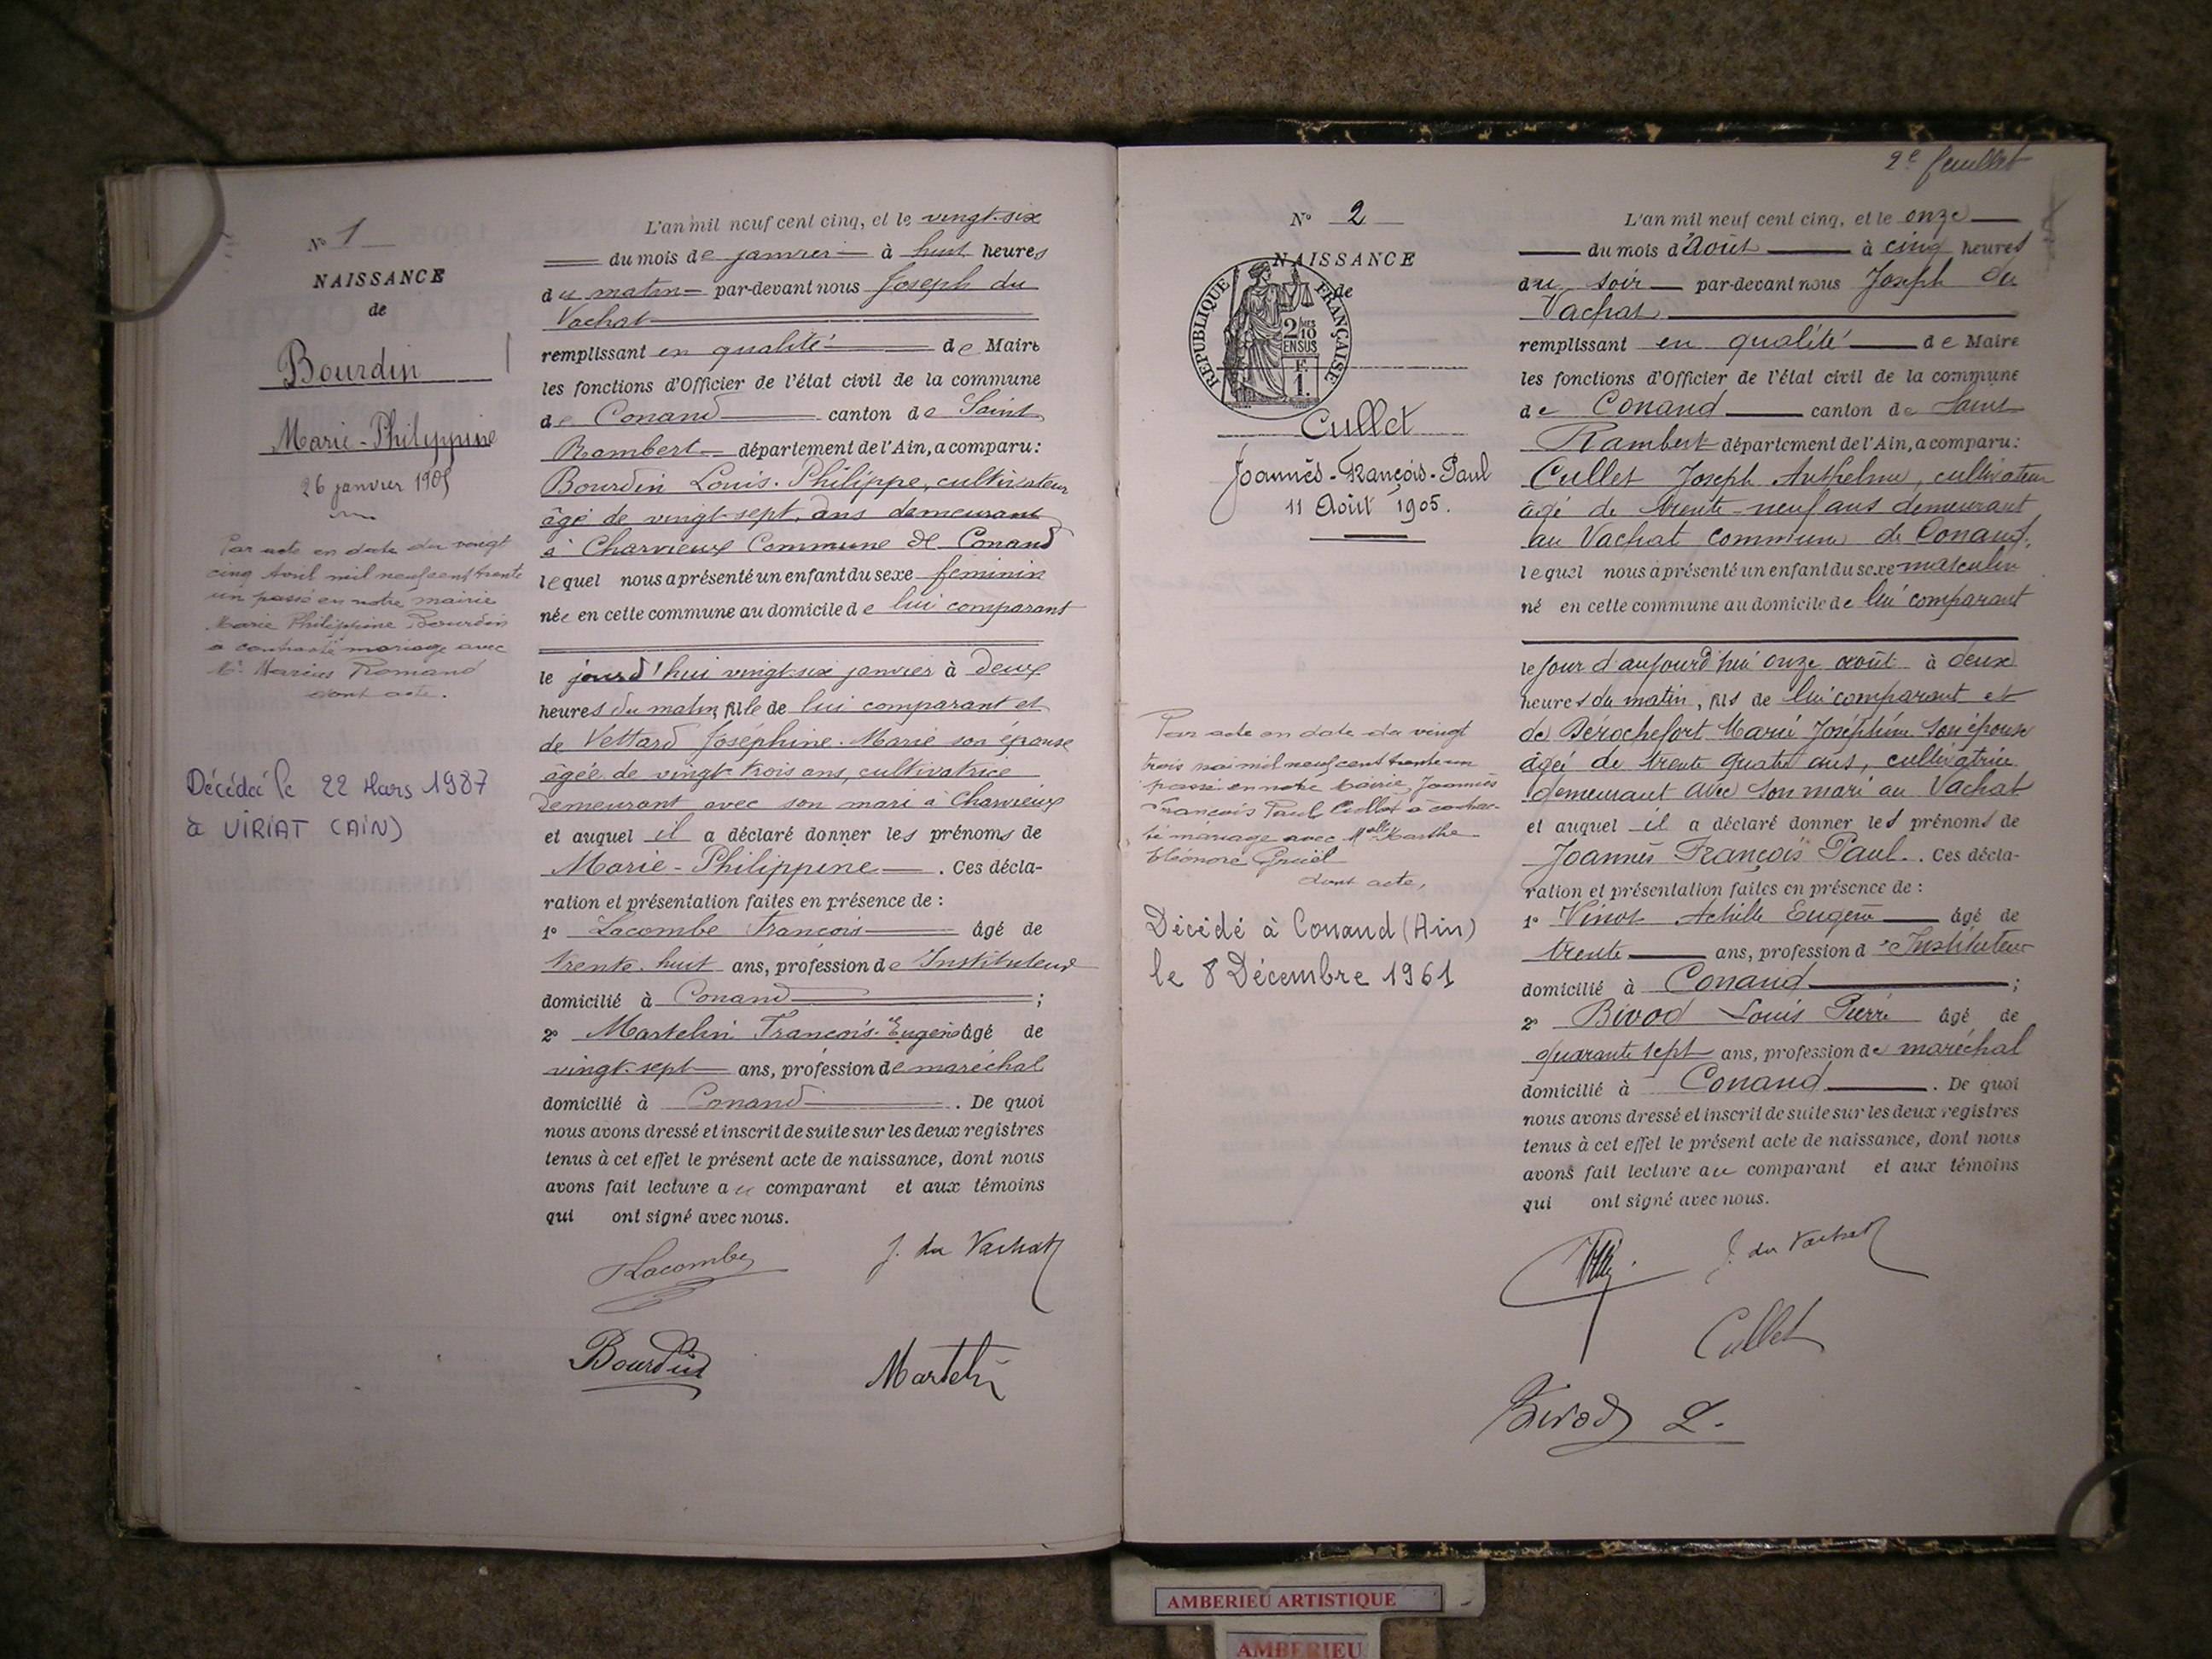 N° 1
NAISSANCE
de
Bourdin
Marie-Philippine
26 janvier 1905
Par acte en date du vingt
cinq Avril mil neuf cent trente
un passé en notre mairie
Marie Philippine Bourdin
a contracté mariage avec
Mr Marius Romand
dont acte.
Décédée le 22 Mars 1987
à VIRIAT (AIN)
L'an mil neuf cent cinq, et le vingt-six
du mois de janvier à huit heures
du matin par-devant nous Joseph du
Vachat
remplissant en qualité de Maire
les fonctions d'Officier de l'état civil de la commune
de Conand canton de Saint
Rambert département de l'Ain, a comparu:
Bourdin Louis-Philippe, cultivateur
âgé de vingt-sept ans demeurant
à Charvieux Commune de Conand
lequel nous a présenté un enfant du sexe féminin
née en cette commune au domicile de lui comparant
le jourd'hui vingt-six janvier à deux
heures du matin, fille de lui comparant et
de Vettard Joséphine-Marie son épouse
âgée de vingt-trois ans, cultivatrice
demeurant avec son mari à Charvieux
et auquel il a déclaré donner les prénoms de
Marie-Philippine. Ces décla-
ration et présentation faites en présence de :
1° Lacombe François âgé de
trente-huit ans, profession de Instituteur
domicilié à Conand ;
2° Martelin François-Eugène âgé de
vingt-sept ans, profession de maréchal
domicilié à Conand . De quoi
nous avons dressé et inscrit de suite sur les deux registres
tenus à cet effet le présent acte de naissance, dont nous
avons fait lecture au comparant et aux témoins
qui ont signé avec nous.
Lacombe J. du Vachat
Bourdin Martelin
2e feuillet
N° 2
NAISSANCE
de
RÉPUBLIQUE FRANÇAISE
2/10 EN SUS
F.
1.
Cullet
Joannès-François-Paul
11 Août 1905.
Par acte en date du vingt
trois mai mil neuf cent trente un
passé en notre Mairie, Joannès
François Paul Cullet a contrac-
té mariage avec Melle Marthe
Eléonore
dont acte,
Décédé à Conand (Ain)
le 8 Décembre 1961
L'an mil neuf cent cinq, et le onze
du mois d'Août à cinq heures
du soir par-devant nous Joseph du
Vachat
remplissant en qualité de Maire
les fonctions d'Officier de l'état civil de la commune
de Conand canton de Saint
Rambert département de l'Ain, a comparu:
Cullet Joseph Anthelme, cultivateur
âgé de trente-neuf ans demeurant
au Vachat commune de Conand,
lequel nous a présenté un enfant du sexe masculin
né en cette commune au domicile de lui comparant
le jour d'aujourd'hui onze août à deux
heures du matin, fils de lui comparant et
de Dérochefort Marie Joséphine son épouse
âgée de trente quatre ans, cultivatrice
demeurant avec son mari au Vachat
et auquel il a déclaré donner les prénoms de
Joannès François Paul. Ces décla-
ration et présentation faites en présence de :
1° Vinot Achille Eugène âgé de
trente ans, profession d'Instituteur
domicilié à Conand ;
2° Bivod Louis Pierre âgé de
quarante sept ans, profession de maréchal
domicilié à Conand . De quoi
nous avons dressé et inscrit de suite sur les deux registres
tenus à cet effet le présent acte de naissance, dont nous
avons fait lecture au comparant et aux témoins
qui ont signé avec nous.
J. du Vachat
Cullet
Bivod L.
AMBERIEU ARTISTIQUE
AMBERIEU